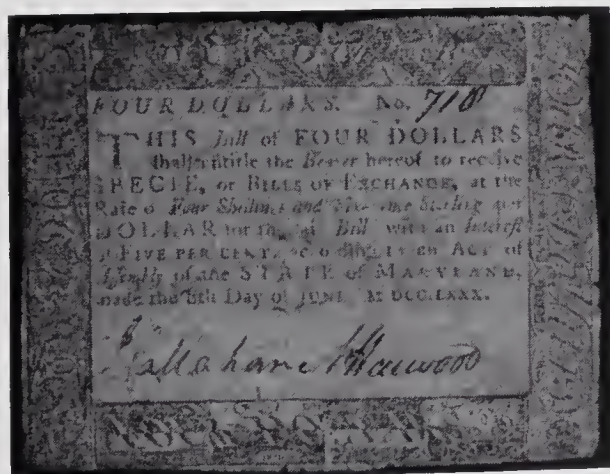 FOUR DOLLARS. No. 718
THIS Bill of FOUR DOLLARS
shall entitle the Bearer hereof to receive
SPECIE, or BILLS OF EXCHANGE, at the
Rate of Four Shillings and Six-pence Sterling per
DOLLAR for the said Bill with an Interest
of FIVE PER CENT. according to an ACT of
Assembly of the STATE of MARYLAND,
made the 8th Day of JUNE, M DCC.LXXX.
Callahan Harwood
FOUR DOLLARS